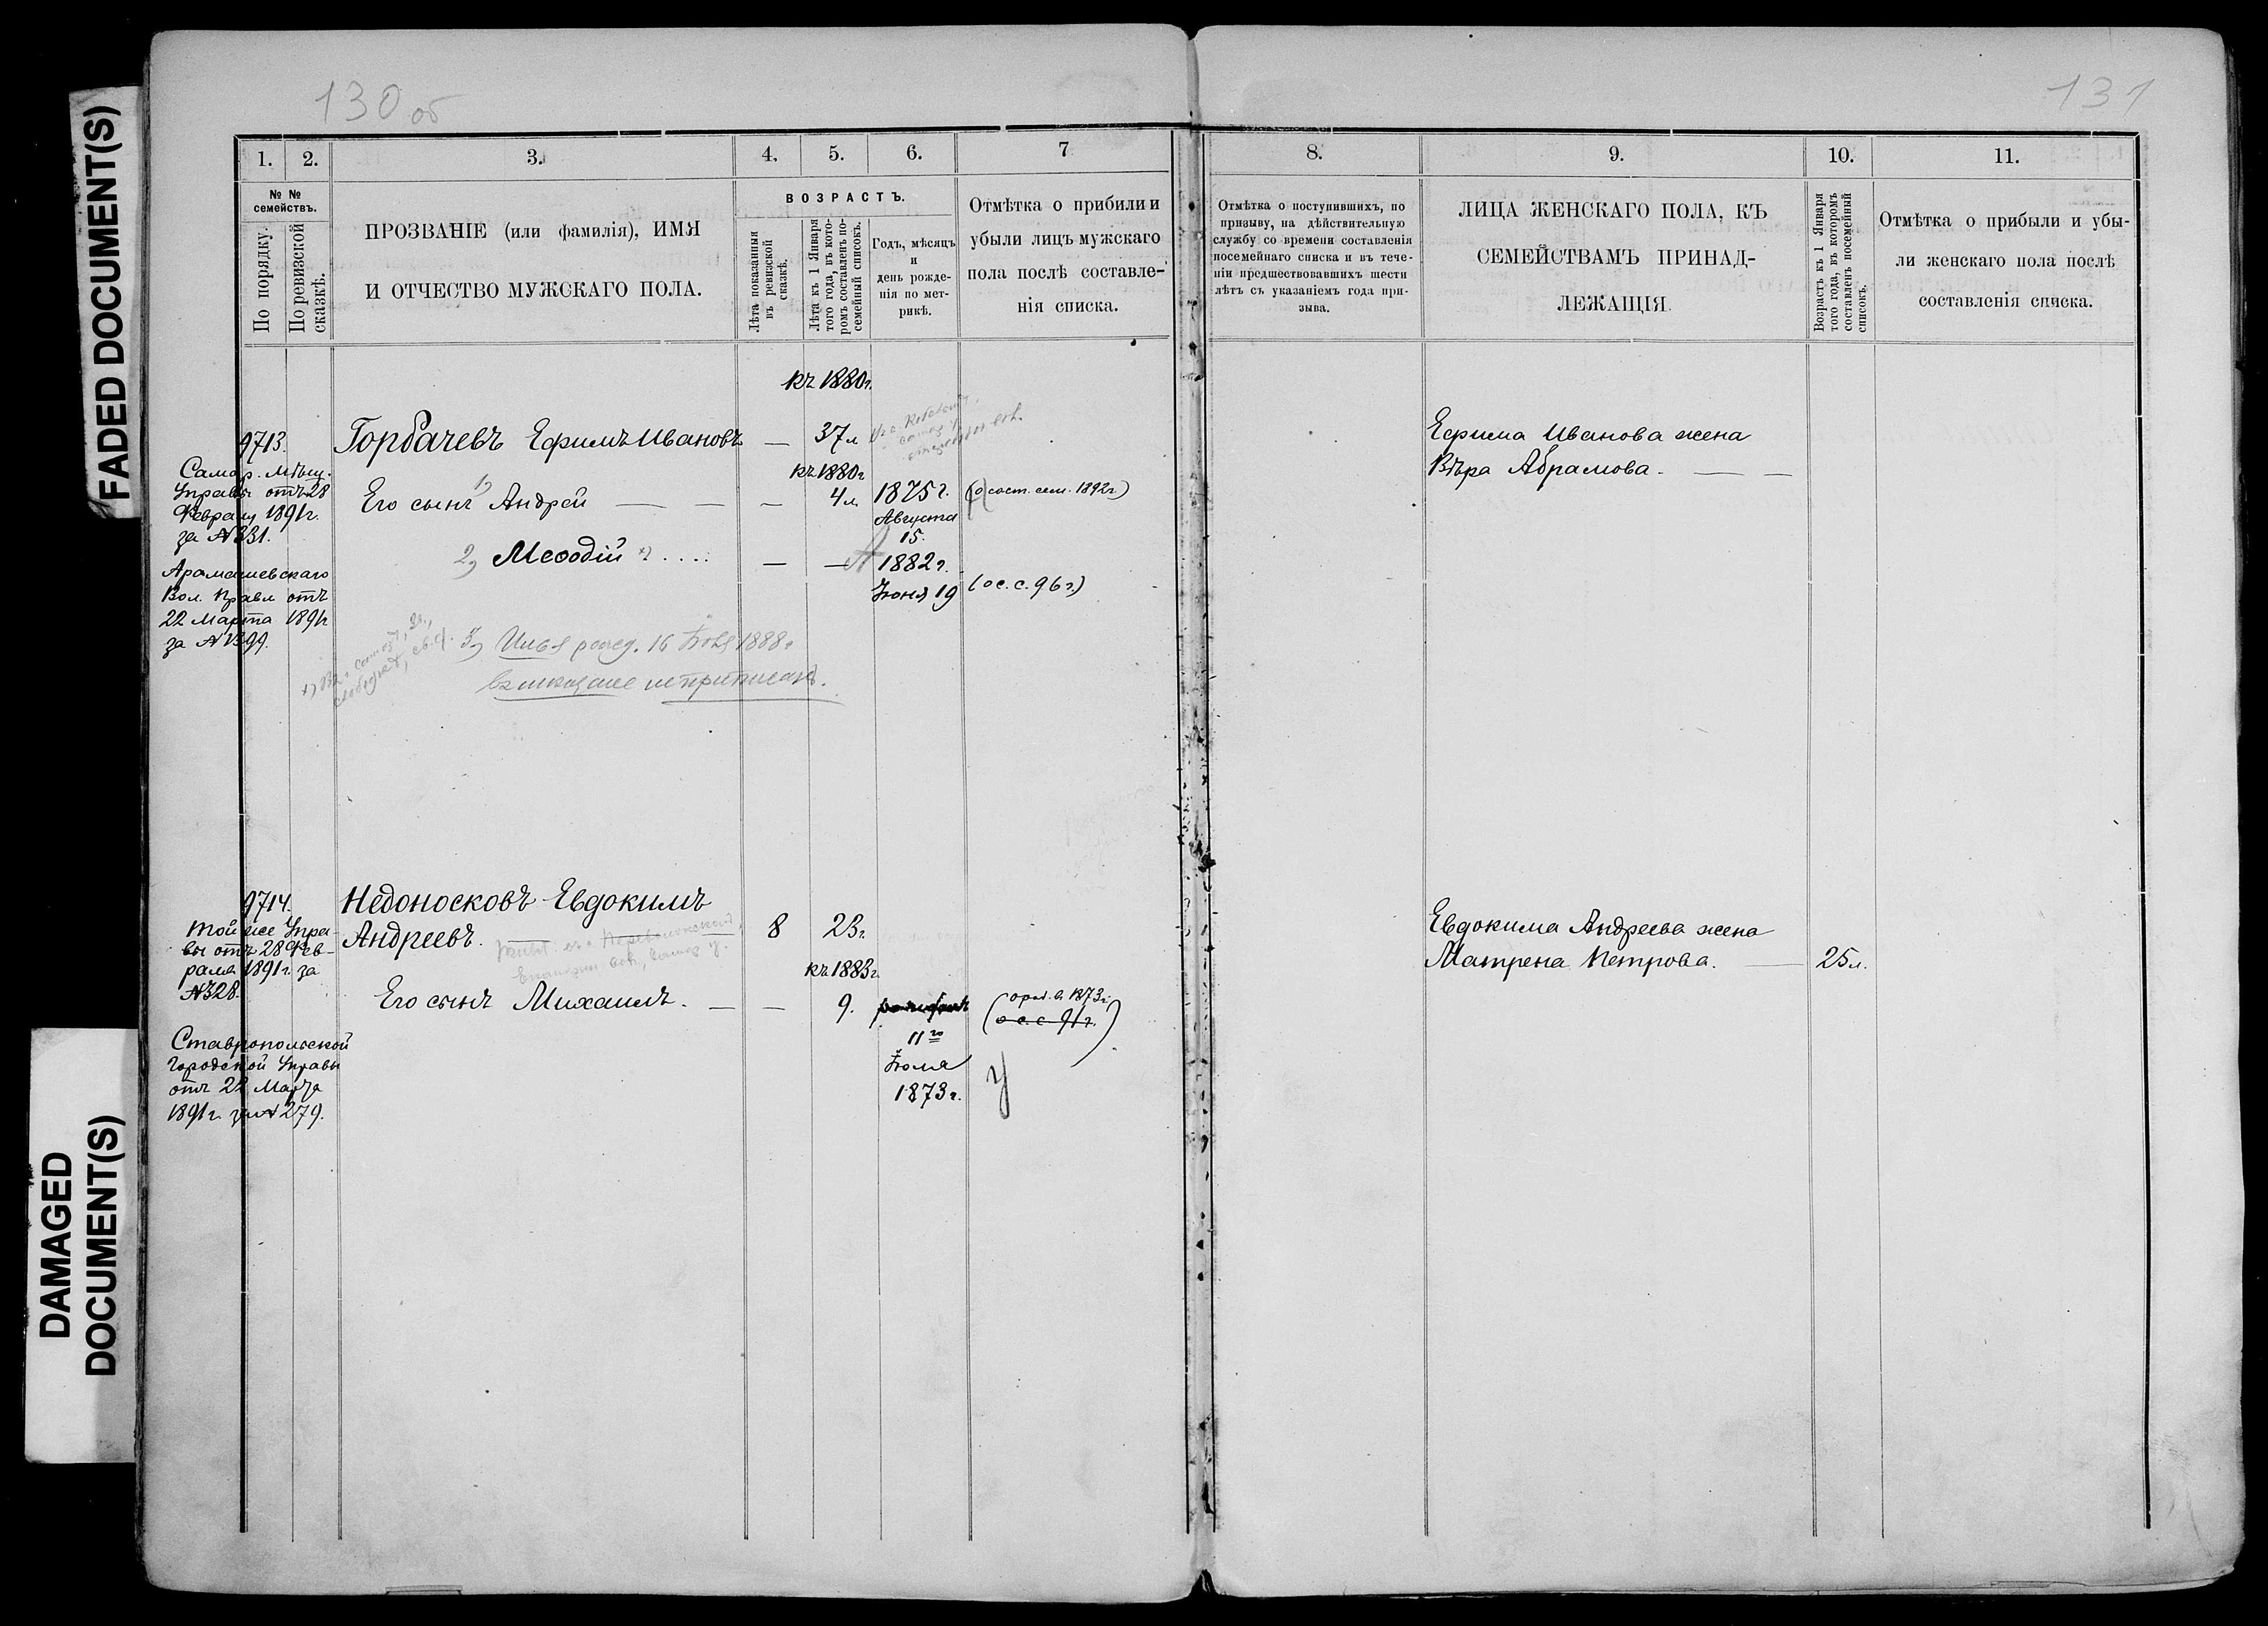 FADED DOCUMENT(S)
DAMAGED
DOCUMENT(S)
130 об
131
1.
2.
3.
4.
5.
6.
7
8.
9.
10.
11.
№ №
семействъ.
По порядку.
По ревизской
сказкѣ.
ПРОЗВАНІЕ (или фамилія), ИМЯ
И ОТЧЕСТВО МУЖСКАГО ПОЛА.
ВОЗРАСТЪ.
Лѣта показанныя
въ ревизской
сказкѣ.
Лѣта къ 1 Января
того года, въ кото-
ромъ составленъ по-
семейный списокъ.
Годъ, мѣсяцъ
и
день рожде-
нія по мет-
рикѣ.
Отмѣтка о прибыли и
убыли лицъ мужскаго
пола послѣ составле-
нія списка.
Отмѣтка о поступившихъ, по
призыву, на дѣйствительную
службу со времени составленія
посемейнаго списка и въ тече-
ніи предшествовавшихъ шести
лѣтъ съ указаніемъ года при-
зыва.
ЛИЦА ЖЕНСКАГО ПОЛА, КЪ
СЕМЕЙСТВАМЪ ПРИНАД-
ЛЕЖАЩІЯ.
Возрастъ къ 1 Января
того года, въ которомъ
составленъ посемейный
списокъ.
Отмѣтка о прибыли и убы-
ли женскаго пола послѣ
составленія списка.
къ 1880г.
9713.
Горбачевъ Ефимъ Ивановъ — 37л
Самар. Мѣщ.
Управы отъ 28
Февраля 1891г.
за №331.
Арамашевскаго
Вол. Правл отъ
22 Марта 1891г
за №1399.
къ 1880г
Его сынъ 1) Андрей — — — 4л. 1875г.
Августа
15.
(о сост. сем. 1892г.)
2) Меѳодій — — 1882г.
Іюня 19
(о с. с. 96г.)
3) Илья рожд. 16 Іюля 1888г
въ мещане не приписанъ.
Ефима Иванова жена
Вѣра Абрамова. — —
9714.
Недоносковъ Евдокимъ
Андреевъ. — 8 23г.
той же Упра-
вы отъ 28 Фев-
раля 1891г. за
№328.
Ставропольской
Городской Управы
отъ 22 Марта
1891г. за №279.
къ 1883г
Его сынъ Михаилъ. — — 9.
11го
Іюля
1873г.
о с. с. 91г.
Евдокима Андреева жена
Матрена Петрова. — 25л.